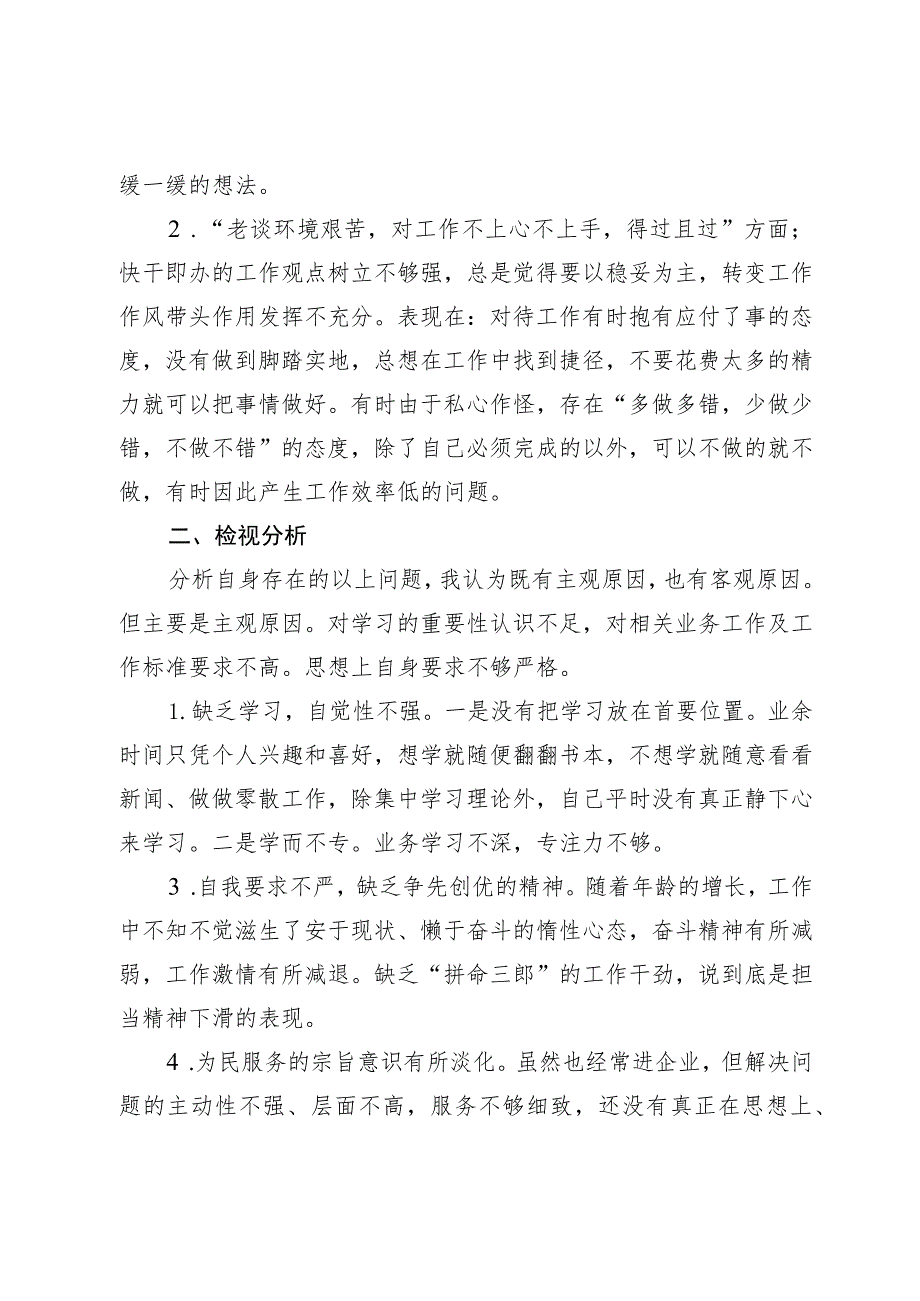 缓一缓的想法。
2 .“老谈环境艰苦，对工作不上心不上手，得过且过”方面；
快干即办的工作观点树立不够强，总是觉得要以稳妥为主，转变工作
作风带头作用发挥不充分。表现在：对待工作有时抱有应付了事的态
度，没有做到脚踏实地，总想在工作中找到捷径，不要花费太多的精
力就可以把事情做好。有时由于私心作怪，存在“多做多错，少做少
错，不做不错”的态度，除了自己必须完成的以外，可以不做的就不
做，有时因此产生工作效率低的问题。
二、检视分析
分析自身存在的以上问题，我认为既有主观原因，也有客观原因。
但主要是主观原因。对学习的重要性认识不足，对相关业务工作及工
作标准要求不高。思想上自身要求不够严格。
1. 缺乏学习，自觉性不强。一是没有把学习放在首要位置。业余
时间只凭个人兴趣和喜好，想学就随便翻翻书本，不想学就随意看看
新闻、做做零散工作，除集中学习理论外，自己平时没有真正静下心
来学习。二是学而不专。业务学习不深，专注力不够。
3 .自我要求不严，缺乏争先创优的精神。随着年龄的增长，工作
中不知不觉滋生了安于现状、懒于奋斗的惰性心态，奋斗精神有所减
弱，工作激情有所减退。缺乏“拼命三郎”的工作干劲，说到底是担
当精神下滑的表现。
4 .为民服务的宗旨意识有所淡化。虽然也经常进企业，但解决问
题的主动性不强、层面不高，服务不够细致，还没有真正在思想上、